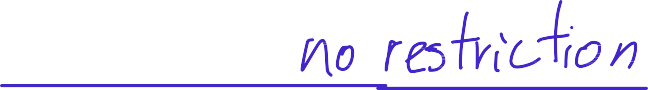 no restriction